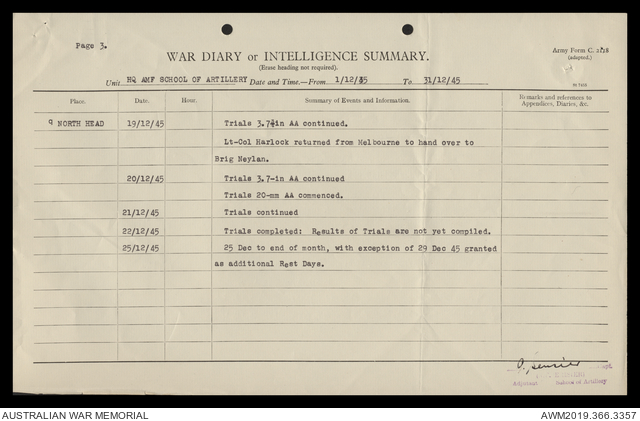 Page 3.
Army Form C. 2118
(adapted.)
WAR DIARY or INTELLIGENCE SUMMARY.
(Erase heading not required).
Unit HQ AMF SCHOOL OF ARTILLERY Date and Time.—From 1/12/45 To 31/12/45
Place. Date. Hour. Summary of Events and Information. Remarks and references to Appendices, Diaries, &c.
9 NORTH HEAD 19/12/45 Trials 3.7-in AA continued.
Lt-Col Harlock returned from Melbourne to hand over to
Brig Neylan.
20/12/45 Trials 3.7-in AA continued
Trials 20-mm AA commenced.
21/12/45 Trials continued
22/12/45 Trials completed: Results of Trials are not yet compiled.
25/12/45 25 Dec to end of month, with exception of 29 Dec 45 granted
as additional Rest Days.
Adjutant School of Artillery
AUSTRALIAN WAR MEMORIAL
AWM2019.366.3357